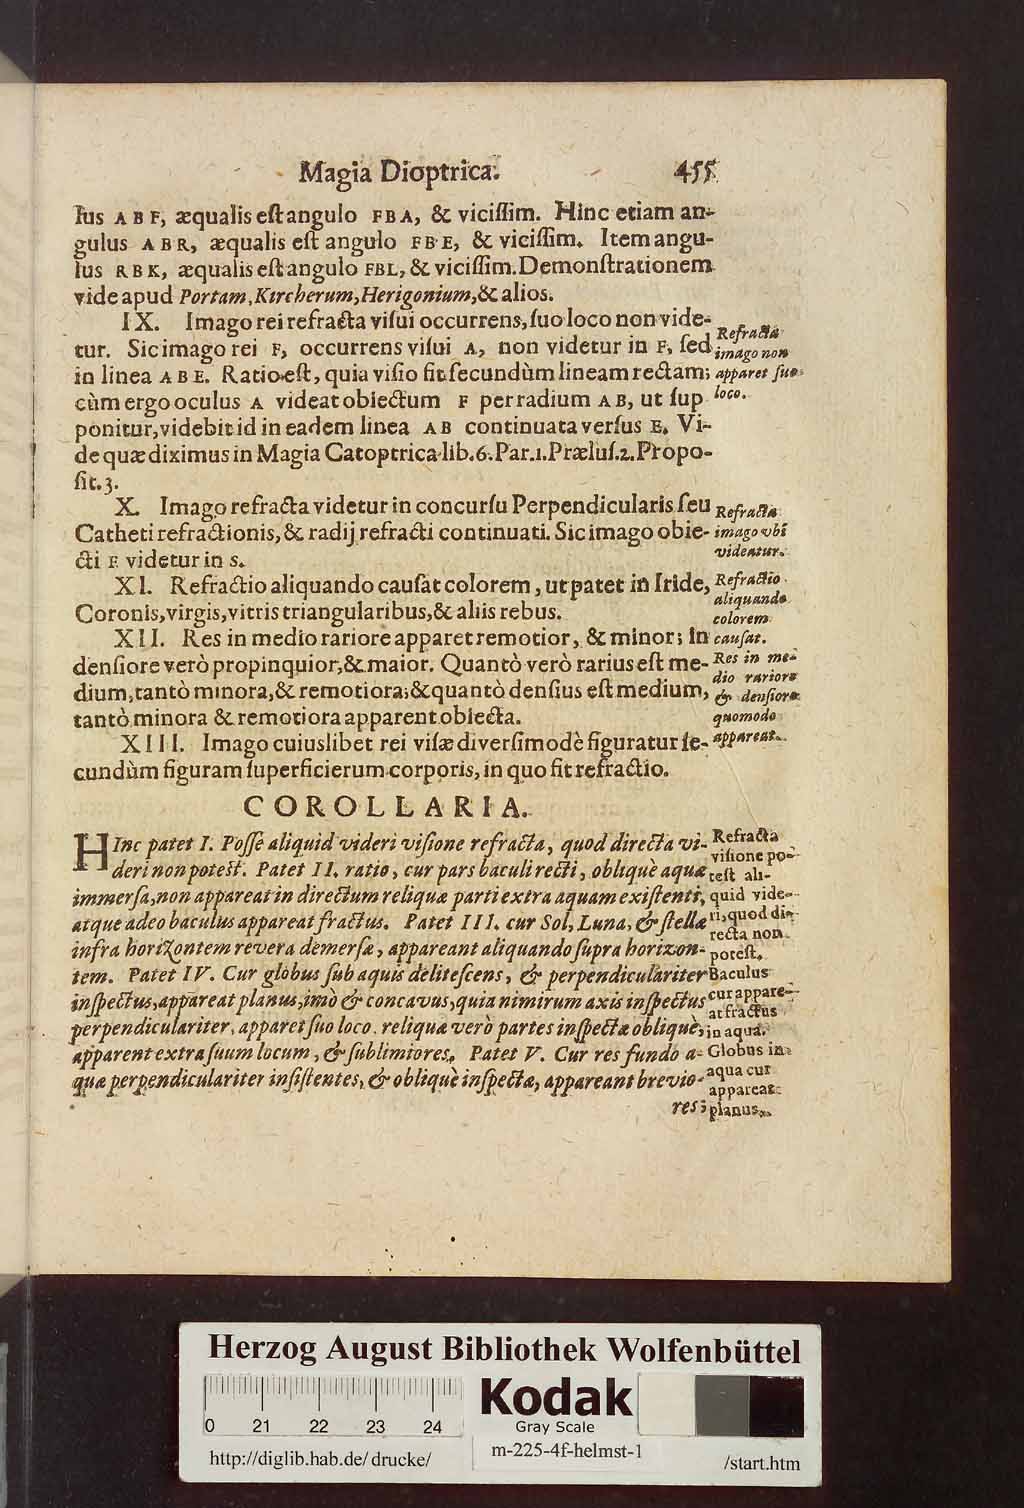 Magia Dioptrica. 455
lus ABF, æqualis est angulo FBA, & vicissim. Hinc etiam an-
gulus ABR, æqualis est angulo FBE, & vicissim. Item angu-
lus RBK, æqualis est angulo FBL, & vicissim. Demonstrationem
vide apud Portam, Kircherum, Herigonium, & alios.
IX. Imago rei refracta visui occurrens, suo loco non vide-
tur. Sic imago rei F, occurrens visui A, non videtur in F, sed
in linea ABE. Ratio est, quia visio fit secundùm lineam rectam;
cùm ergo oculus A videat obiectum F per radium AB, ut sup
ponitur, videbit id in eadem linea AB continuata versus E. Vi-
de quæ diximus in Magia Catoptrica lib. 6. Par. 1. Prælus. 2. Propo-
sit. 3.
Refracta
imago non
apparet suo
loco.
X. Imago refracta videtur in concursu Perpendicularis seu
Catheti refractionis, & radij refracti continuati. Sic imago obie-
cti F videtur in S.
Refracta
imago vbi
videatur.
XI. Refractio aliquando causat colorem, ut patet in Iride,
Coronis, virgis, vitris triangularibus, & aliis rebus.
Refractio
aliquando
colorem
causat.
XII. Res in medio rariore apparet remotior, & minor; in
densiore verò propinquior, & maior. Quantò verò rarius est me-
dium, tantò minora, & remotiora; & quantò densius est medium,
tantò minora & remotiora apparent obiecta.
Res in me-
dio rariore
& densiore
quomodo
appareat.
XIII. Imago cuiuslibet rei visæ diversimodè figuratur se-
cundùm figuram superficierum corporis, in quo fit refractio.
COROLLARIA.
HInc patet I. Posse aliquid videri visione refracta, quod directa vi-
deri non potest. Patet II. ratio, cur pars baculi recti, obliquè aquæ
immersa, non appareat in directum reliquæ parti extra aquam existenti,
atque adeo baculus appareat fractus. Patet III. cur Sol, Luna, & stellæ
infra horizontem revera demersæ, appareant aliquando supra horizon-
tem. Patet IV. Cur globus sub aquis delitescens, & perpendiculariter
inspectus, appareat planus, imò & concavus, quia nimirum axis inspectus
perpendiculariter, apparet suo loco. reliquæ verò partes inspectæ obliquè,
apparent extra suum locum, & sublimiores. Patet V. Cur res fundo a-
quæ perpendiculariter insistentes, & obliquè inspectæ, appareant brevio-
res;
Refracta
visione po-
test ali-
quid vide-
ri, quod di-
recta non
potest.
Baculus
cur appare-
at fractus
in aqua.
Globus in
aqua cur
appareat
planus.
Herzog August Bibliothek Wolfenbüttel
0 21 22 23 24
Kodak
Gray Scale
http://diglib.hab.de/drucke/
m-225-4f-helmst-1
/start.htm